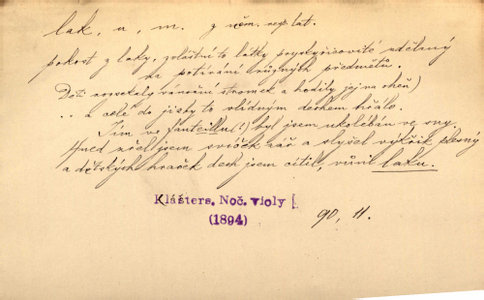 lak, u, m. z něm. nepl. lat.
pokost z laky, zvláštní to látky pryskyřicovité udělaný
na potívání různých předmětů.
Děti rozsekaly vánoční stromek a hodily jej na oheň)
.. a celé do jizby to vlídným dechem hřálo.
Tím ve fauteuillu(!) byl jsem ukolébán ve sny.
Hned zřel jsem svíček zář a slyšel výkřik plesný
a dětských hraček dech jsem cítil, vůni laku.
Klášters. Noč. violy [
(1894)
90, 11.